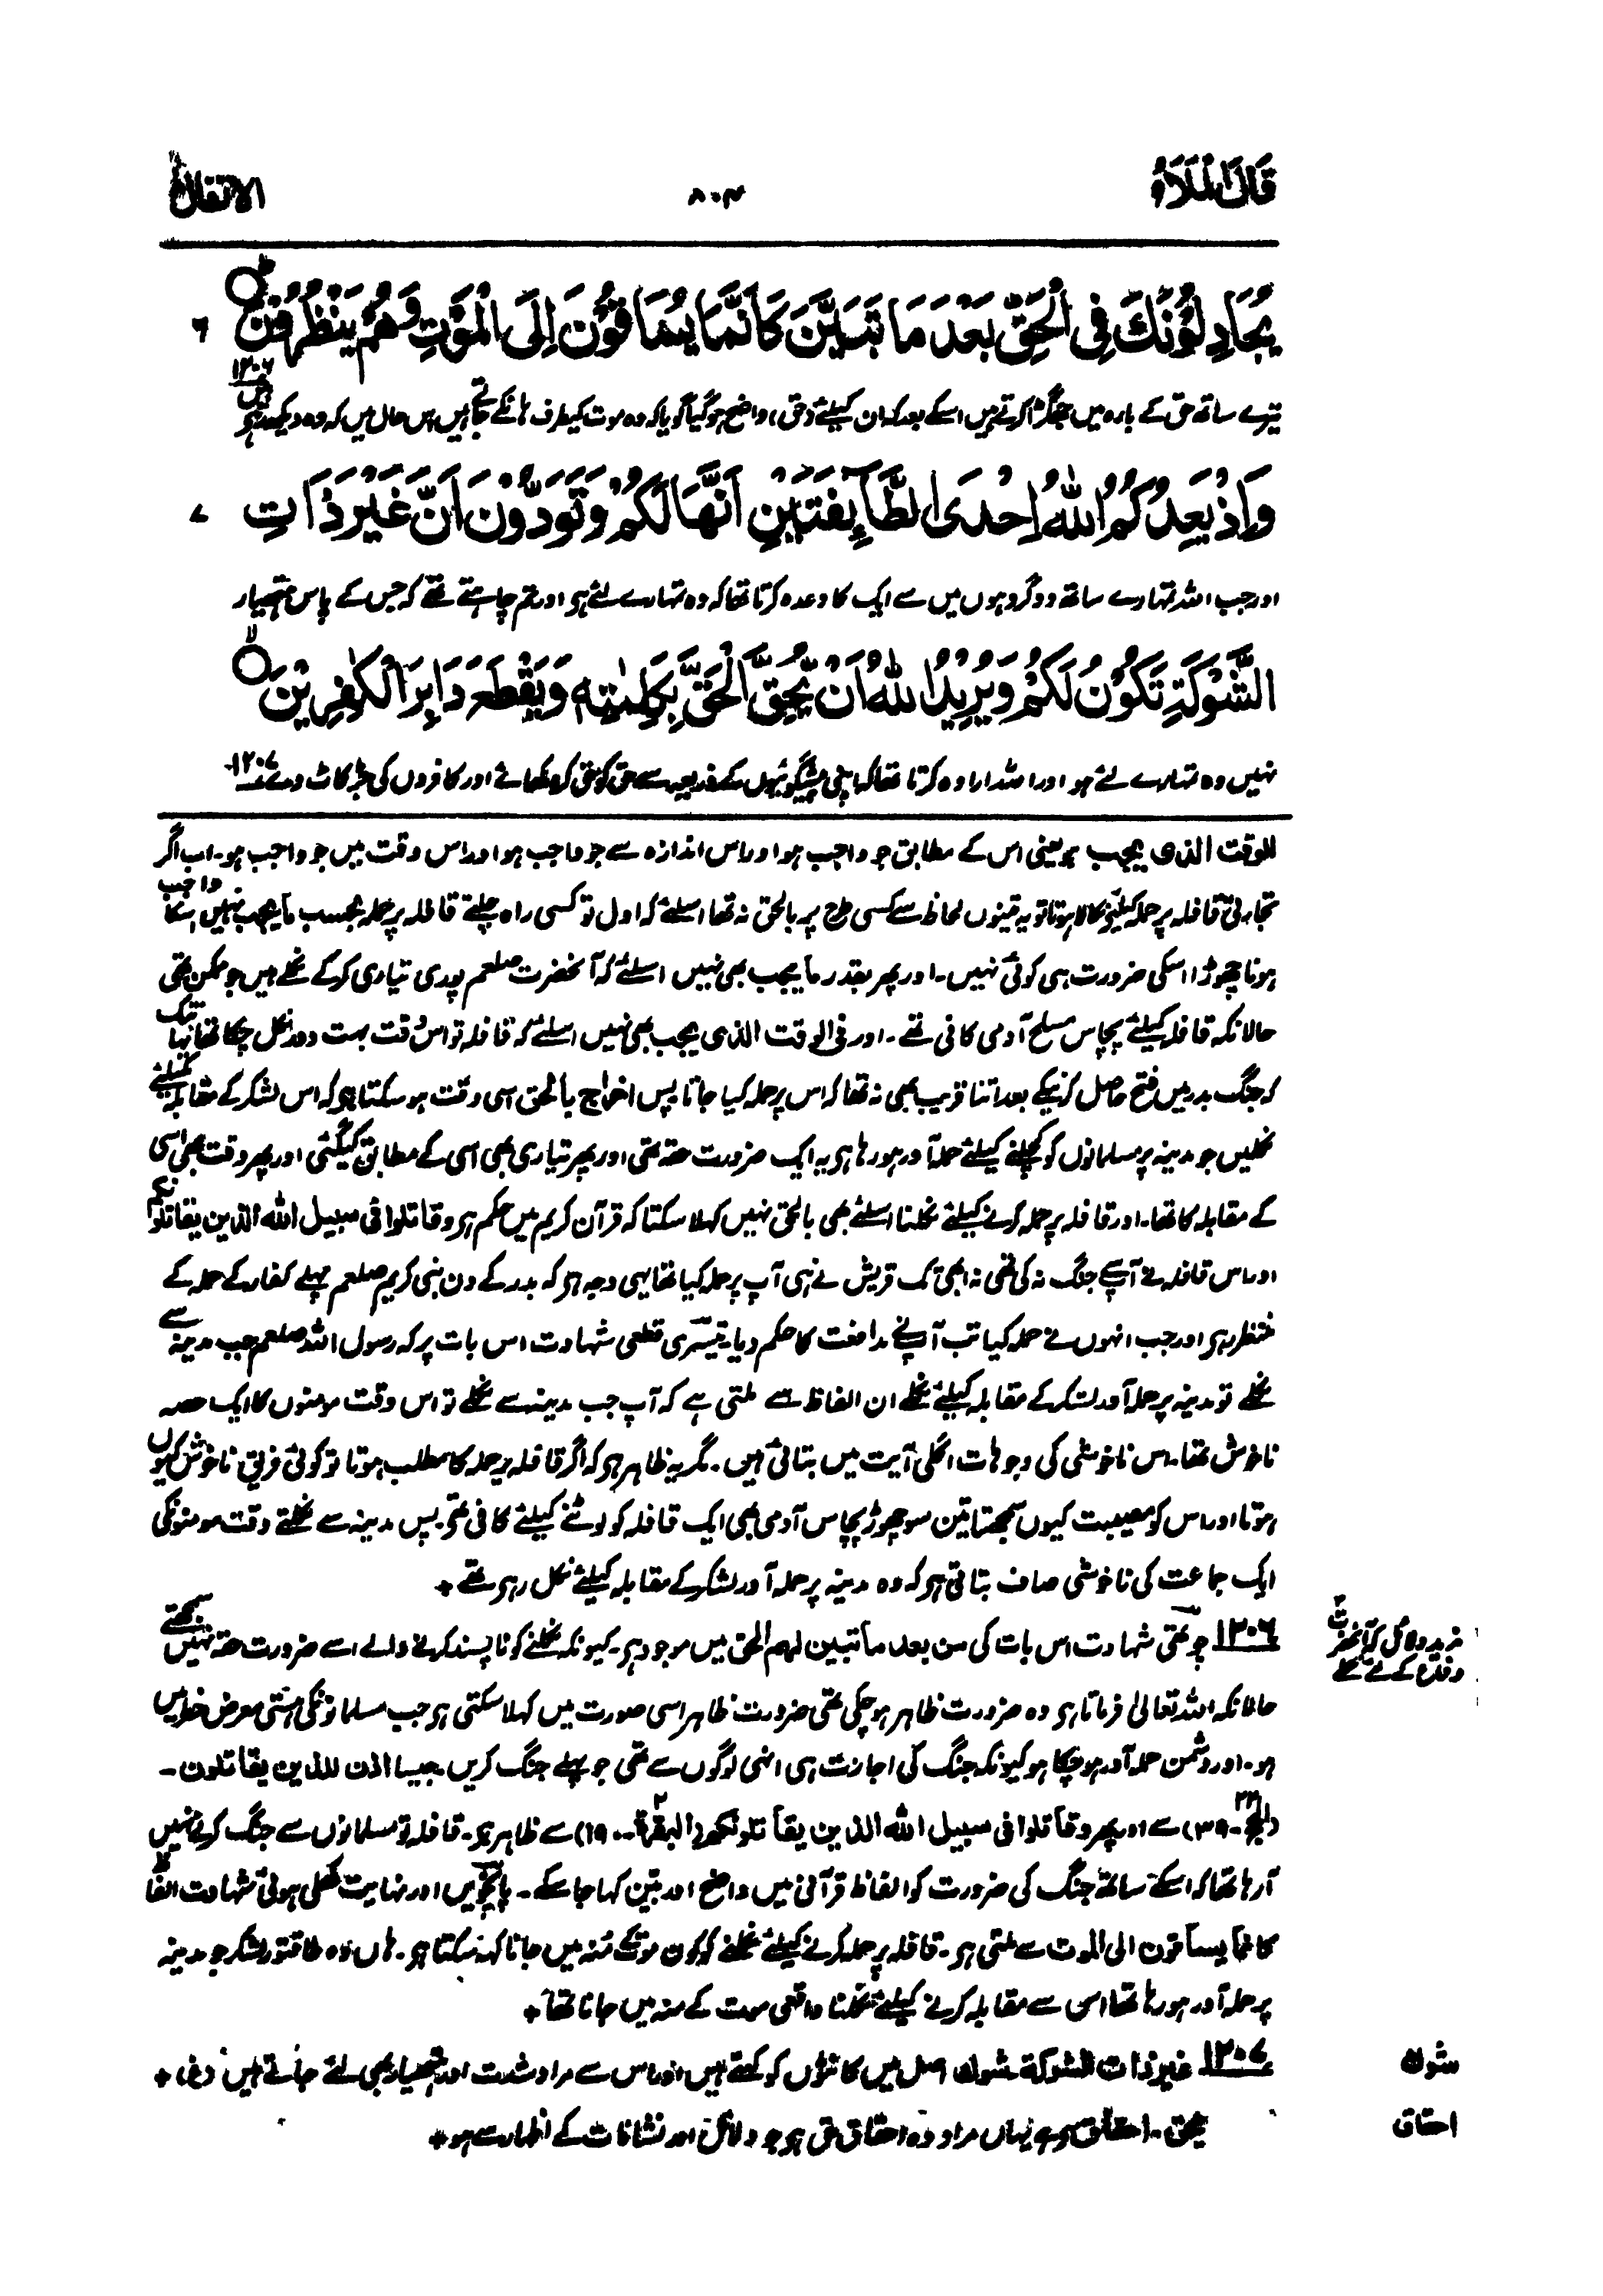 قَالَ الْمَلَاُ ۸۰۴ الانفال
یُجَادِلُوْنَكَ فِی الْحَقِّ بَعْدَ مَا تَبَیَّنَ كَاَنَّمَا یُسَاقُوْنَ اِلَی الْمَوْتِ وَهُمْ یَنْظُرُوْنَ ۶
تیرے ساتھ حق کے بارہ میں جھگڑا کرتے ہیں اسکے بعد کہ ان کیلئے (حق) واضح ہوگیا گویا کہ وہ موت کیطرف ہانکے جاتے ہیں اس حال میں کہ وہ دیکھ رہے ہیں ۱۲۰۶
وَاِذْ یَعِدُكُمُ اللّٰهُ اِحْدَی الطَّآئِفَتَیْنِ اَنَّهَا لَكُمْ وَتَوَدُّوْنَ اَنَّ غَیْرَ ذَاتِ ۷
اور جب اللہ تمہارے ساتھ دو گروہوں میں سے ایک کا وعدہ کرتا تھا کہ وہ تمہارے لئے ہی اور تم چاہتے تھے کہ جس کے پاس ہتھیار
الشَّوْكَةِ تَكُوْنُ لَكُمْ وَیُرِیْدُ اللّٰهُ اَنْ یُّحِقَّ الْحَقَّ بِكَلِمٰتِهٖ وَیَقْطَعَ دَابِرَ الْكٰفِرِیْنَ
نہیں وہ تمہارے لئے ہو اور اللہ ارادہ کرتا تھا کہ اپنی پیشگوئیوں کے ذریعہ سے حق کو حق کر دکھائے اور کافروں کی جڑ کاٹ دے ۱۲۰۷
للوقت الذی یجب ہو یعنی اس کے مطابق جو واجب ہو اور اس اندازہ سے جو واجب ہو اور اس وقت میں جو واجب ہو۔ اب اگر
تجارتی قافلہ پر حملہ کیلئے نکالا ہوتا تو یہ تینوں لحاظ سے کسی طرح پر بالحق نہ تھا اسلئے کہ اول تو کسی راہ چلتے قافلہ پر حملہ بحسب ما یجب نہیں اسکا واجب
ہونا چھوڑا اسکی ضرورت ہی کوئی نہیں۔ اور پھر بقدر ما یجب بھی نہیں اسلئے کہ آنحضرت صلعم پوری تیاری کرکے نکلے ہیں جو ممکن تھی
حالانکہ قافلہ کیلئے پچاس مسلح آدمی کافی تھے۔ اور فی الوقت الذی یجب بھی نہیں اسلئے کہ قافلہ تو اس وقت بہت دور نکل چکا تھا یہانتک
کہ جنگ بدر میں فتح حاصل کرنیکے بعد اتنا قریب بھی نہ تھا کہ اس پر حملہ کیا جاتا پس اخراج بالحق اسی وقت ہو سکتا ہو کہ اس لشکر کے مقابلہ کیلئے
نکلیں جو مدینہ پر مسلمانوں کو کچلنے کیلئے حملہ آور ہو رہا ہی یہ ایک ضرورت حقہ تھی اور پھر تیاری بھی اسی کے مطابق کیگئی اور پھر وقت بھی اسی
کے مقابلہ کا تھا۔ اور قافلہ پر حملہ کرنے کیلئے نکلنا اسلئے بھی بالحق نہیں کہلا سکتا کہ قرآن کریم میں حکم ہی وقاتلوا فی سبیل اللہ الذین یقاتلونکم
اور اس قافلہ نے آپ سے جنگ نہ کی تھی نہ ابھی تک قریش نے ہی آپ پر حملہ کیا تھا یہی وجہ ہی کہ بدر کے دن نبی کریم صلعم پہلے کفار کے حملہ کے
منتظر رہی اور جب انہوں نے حملہ کیا تب آپنے مدافعت کا حکم دیا۔ تیسری قطعی شہادت اس بات پر کہ رسول اللہ صلعم جب مدینہ سے
نکلے تو مدینہ پر حملہ آور لشکر کے مقابلہ کیلئے نکلے ان الفاظ سے ملتی ہے کہ آپ جب مدینہ سے نکلے تو اس وقت مومنوں کا ایک حصہ
ناخوش تھا۔ اس ناخوشی کی وجوہات اگلی آیت میں بتائی ہیں۔ مگر یہ ظاہر ہی کہ اگر قافلہ پر حملہ کا مطلب ہوتا تو کوئی فریق ناخوش کیوں
ہوتا اور اس کو مصیبت کیوں سمجھتا تین سو چھوڑ پچاس آدمی بھی ایک قافلہ کو لوٹنے کیلئے کافی تھی۔ پس مدینہ سے نکلتے وقت مومنونکی
ایک جماعت کی ناخوشی صاف بتاتی ہی کہ وہ مدینہ پر حملہ آور لشکر کے مقابلہ کیلئے نکل رہی تھے +
۱۲۰۶ چوتھی شہادت اس بات کی من بعد ما تبین لہم الحق میں موجود ہی۔ کیونکہ نکلنے کو ناپسند کرنے والے اسے ضرورت حقہ نہیں سمجھتے
مزید دلائل کہ آنحضرت
دفاع کے لئے نکلے
حالانکہ اللہ تعالیٰ فرماتا ہی وہ ضرورت ظاہر ہو چکی تھی ضرورت ظاہر اسی صورت میں کہلا سکتی ہی جب مسلمانونکی ہستی معرض خطر میں
ہو۔ اور دشمن حملہ آور ہو چکا ہو کیونکہ جنگ کی اجازت ہی انہی لوگوں سے تھی جو پہلے جنگ کریں جیسا اذن للذین یقاتلون۔
(الحج ۲۲۔ ۳۹) سے اور پھر وقاتلوا فی سبیل اللہ الذین یقاتلونکم (البقرۃ ۲۔ ۱۹۰) سے ظاہر ہی۔ قافلہ تو مسلمانوں سے جنگ کرنے نہیں
آرہا تھا کہ اسکے ساتھ جنگ کی ضرورت کو الفاظ قرآنی میں واضح اور بیّن کہا جا سکے۔ پانچویں اور نہایت کھلی ہوئی شہادت الفاظ
کانما یساقون الی الموت سے ملتی ہی۔ قافلہ پر حملہ کرنے کیلئے نکلنے کو کون موت کے منہ میں جانا کہہ سکتا ہی۔ ہاں وہ طاقتور لشکر جو مدینہ
پر حملہ آور ہو رہا تھا اس سے مقابلہ کرنے کیلئے نکلنا واقعی موت کے منہ میں جانا تھا +
۱۲۰۷ غیر ذات الشوکۃ شوک اصل میں کانٹوں کو کہتے ہیں اور اس سے مراد شدت اور ہتھیار بھی لئے جاتے ہیں (غ) +
شوک
یحق۔ احقاق سے یہاں مراد وہ احقاق حق ہی جو دلائل اور نشانات کے اظہار سے ہو +
احقاق